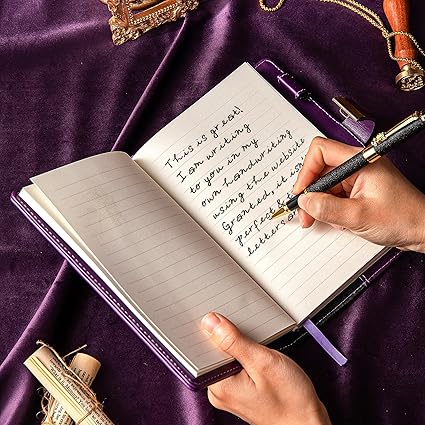 This is great!
I am writing
to you in my
own handwriting
using the website
Granted, it isn't
perfect
letters